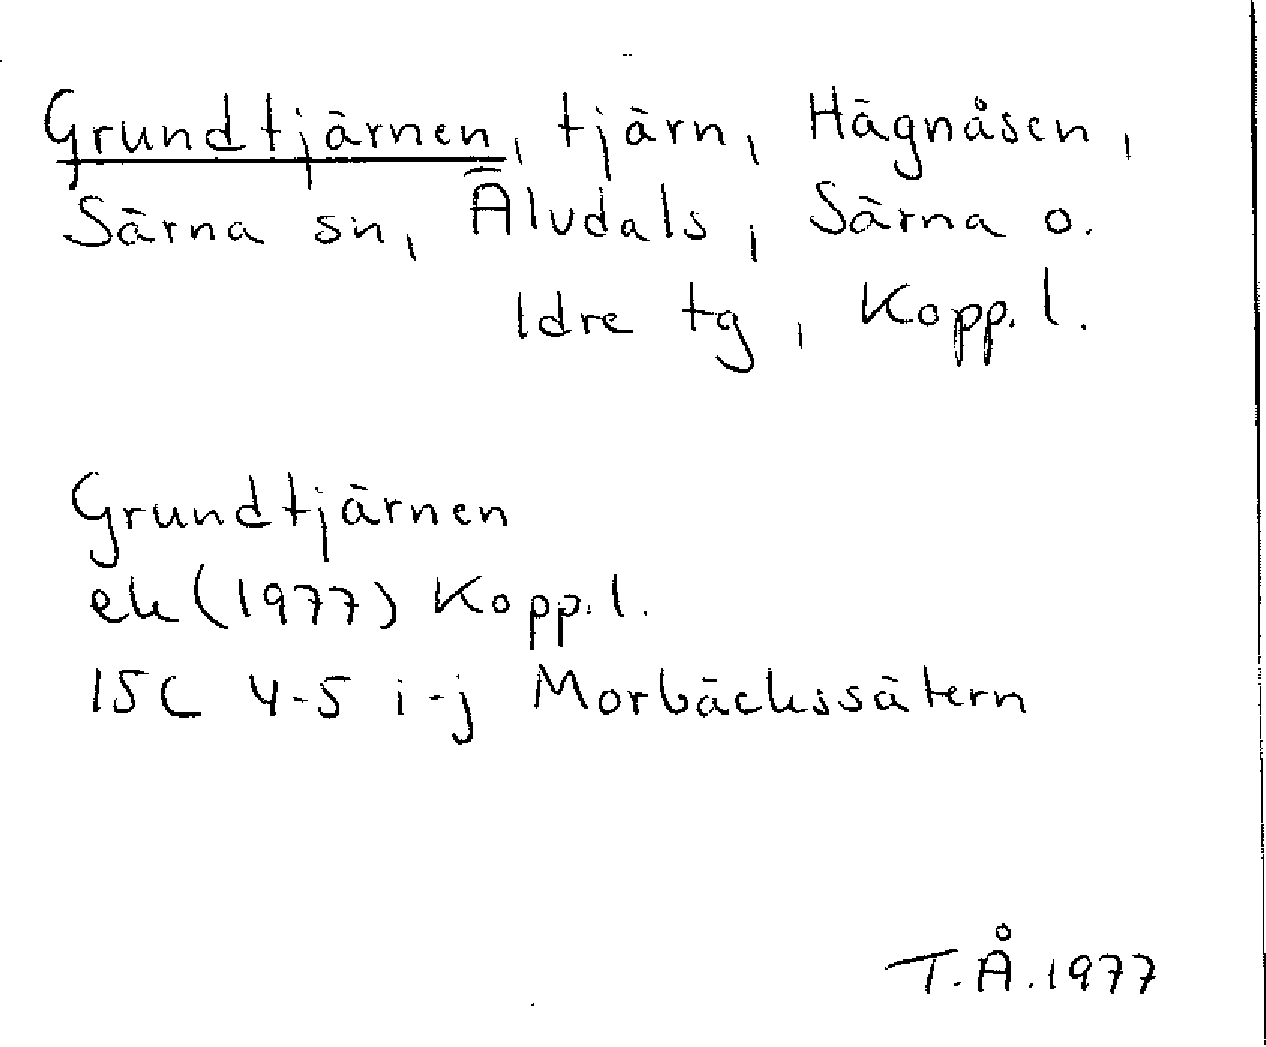 Grundtjärnen, tjärn, Hägnåsen,
Särna sn, Älvdals, Särna o.
Idre tg, Kopp. l.
Grundtjärnen
ek (1977) Kopp. l.
15C 4-5 i-j Morbäckssätern
T.Å. 1977